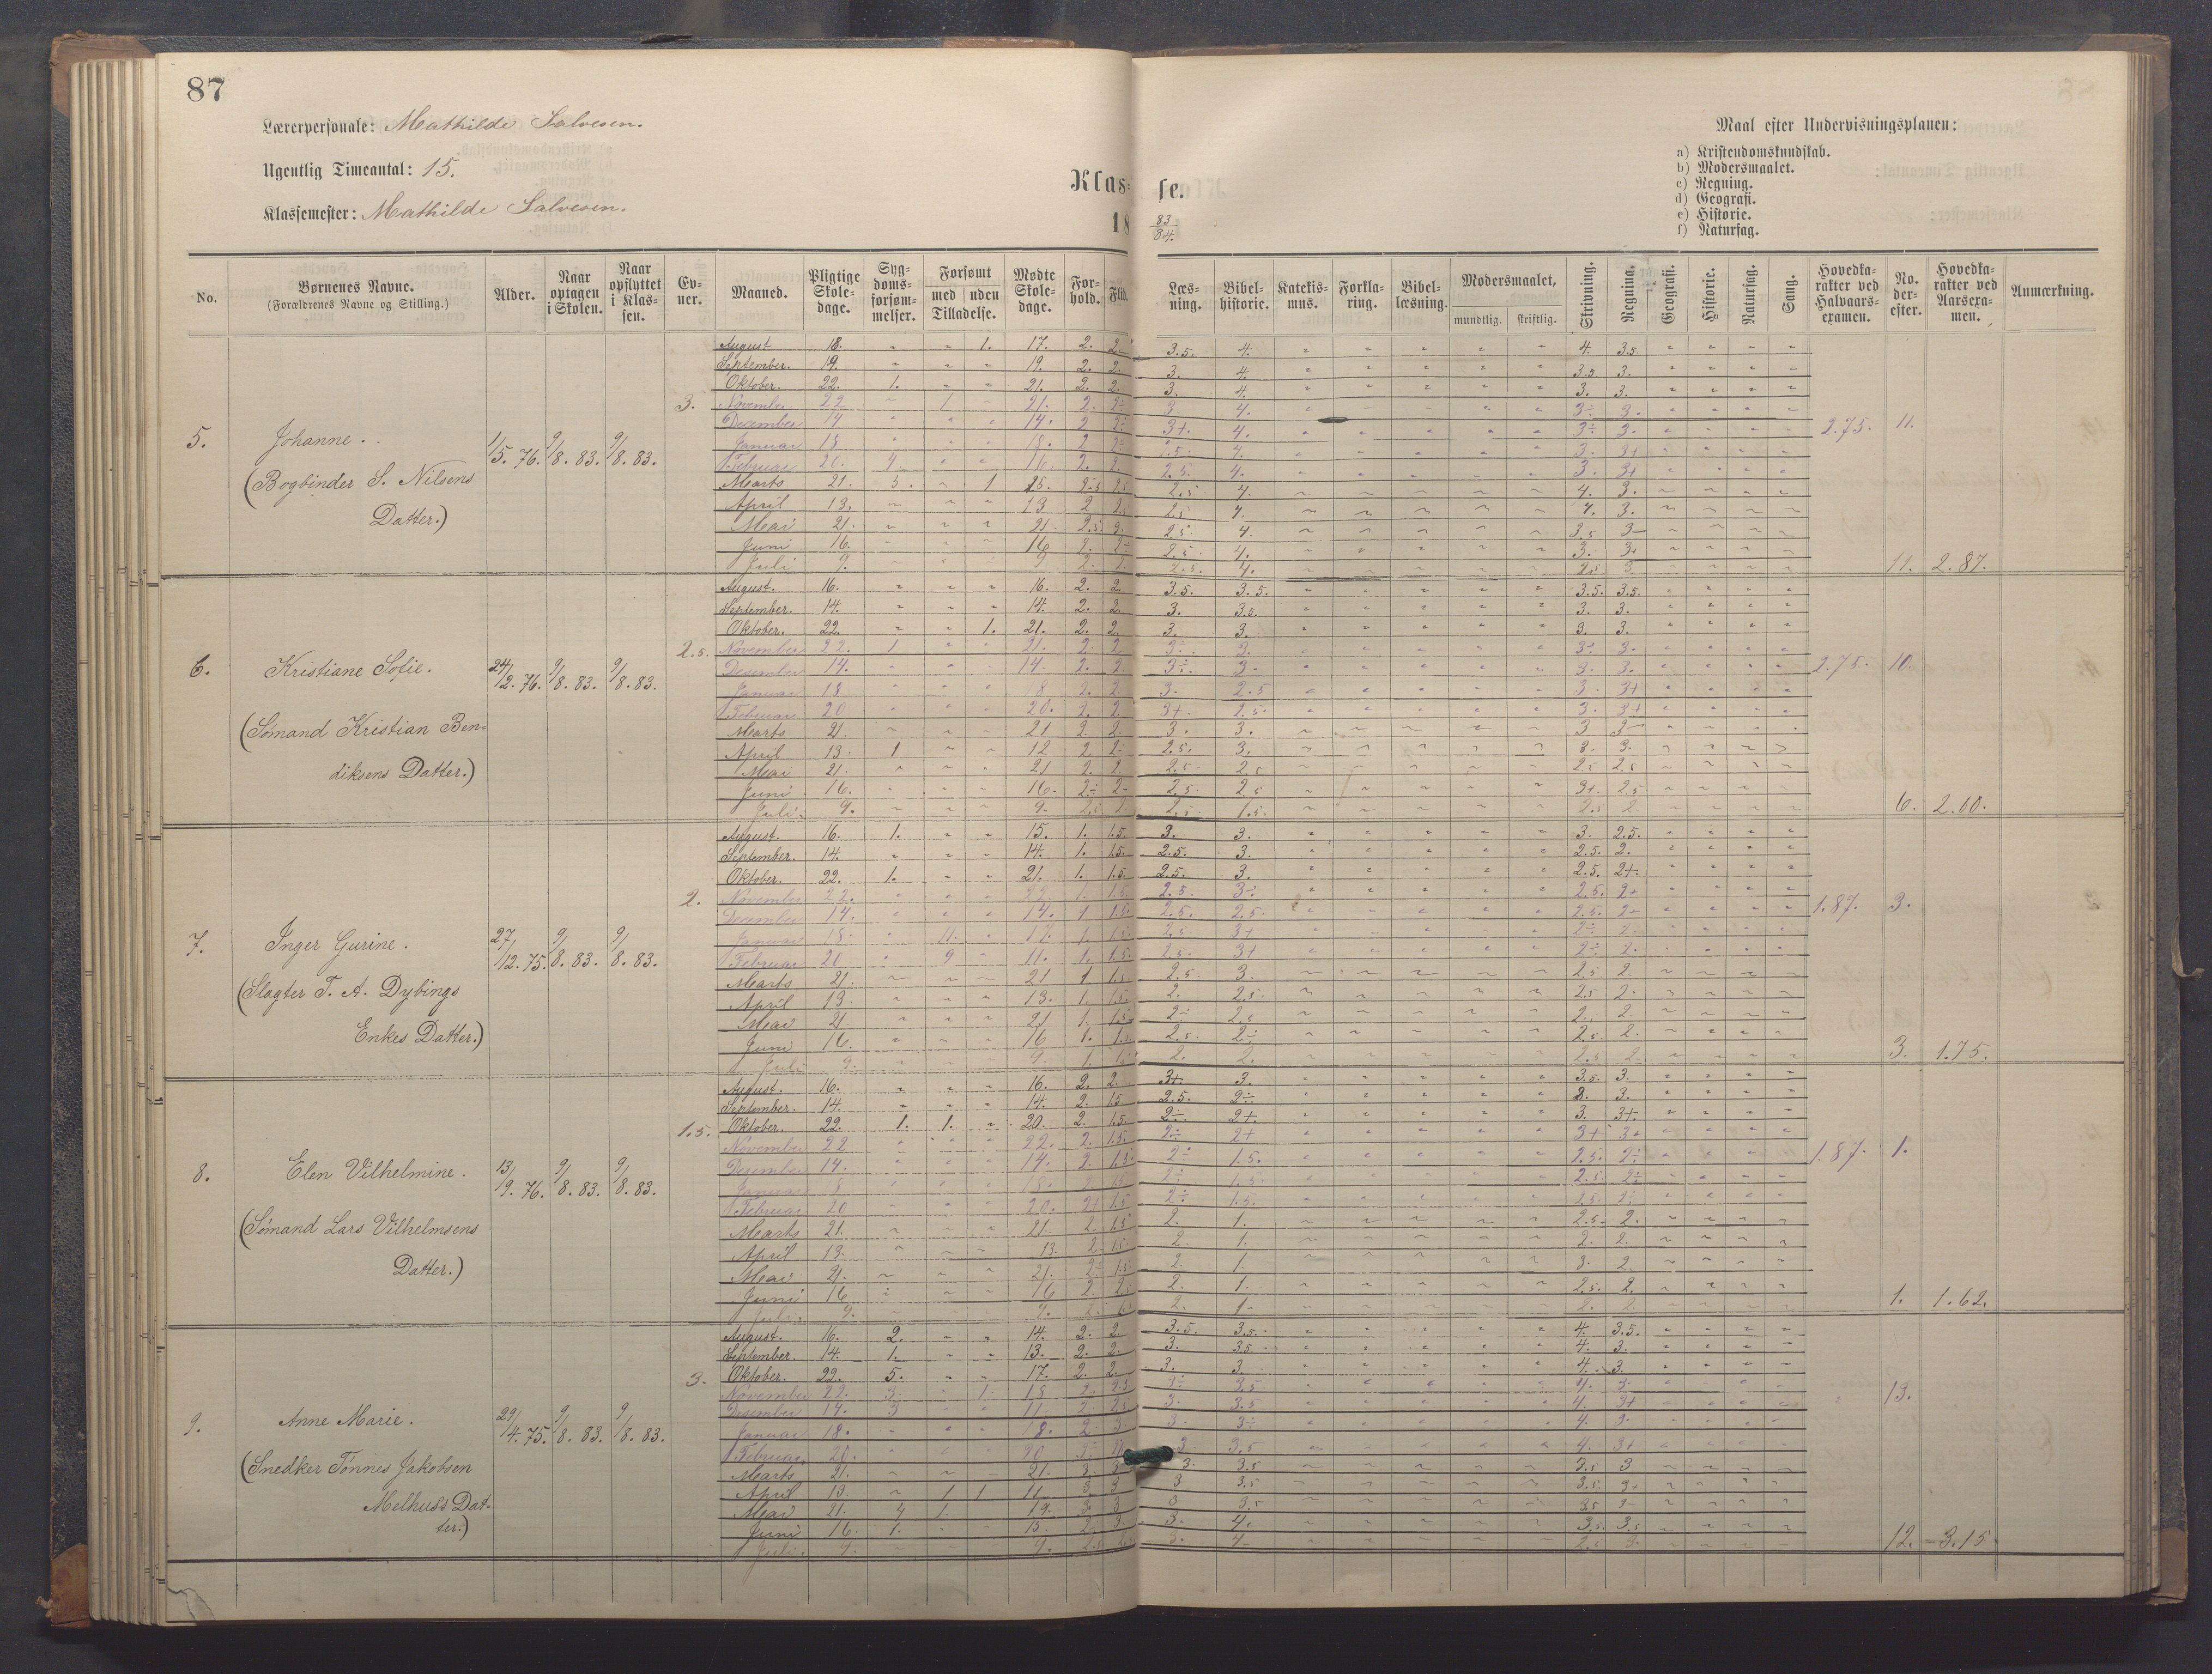 87
Lærerpersonale: Mathilde Salvesen.
Ugentlig Timeantal: 15.
Klassemester: Mathilde Salvesen.
Klasse.
18 83/84.
Maal efter Undervisningsplanen:
a) Kristendomskundskab.
b) Modersmaalet.
c) Regning.
d) Geografi.
e) Historie.
f) Naturfag.
No.
Børnenes Navne.
(Forældrenes Navne og Stilling.)
Alder.
Naar optagen i Skolen.
Naar opflyttet i Klassen.
Evner.
Maaned.
Pligtige Skoledage.
Sygdomsforsømmelser.
Forsømt med uden Tilladelse.
Mødte Skoledage.
Forhold.
Flid.
Læsning.
Bibelhistorie.
Katekismus.
Forklaring.
Bibellæsning.
Modersmaalet, mundtlig. skriftlig.
Skrivning.
Regning.
Geografi.
Historie.
Naturfag.
Sang.
Hovedkarakter ved Halvaarsexamen.
No. derefter.
Hovedkarakter ved Aarsexamen.
Anmærkning.
5. Johanne.
(Bogbinder S. Nilsens
Datter.)
1/5. 76. 9/8. 83. 9/8. 83. 3.
August 18. 1. 17. 2. 2. 3.5. 4. 4. 3.5
September. 19. 19. 2. 2. 3. 4. 3.5 3.
Oktober. 22. 1. 21. 2. 2. 3. 4. 3. 3.
November 22 1 21. 2. 3. 4. 3÷ 3.
December 14 14. 2 3+. 4. 3÷ 3.
Januar 18 18. 2 4. 3. 3+
Februar 20. 4. 16. 2. 2. 2.5. 4. 3. 3+
Marts 21. 5. 1 15. 2.5 4. 4. 3.
April 13. 13 2 2.5 4. 4. 3.
Mai 21. 21 2.5 2. 2.5 4. 3.5 3-
Juni 16. 16 2. 2.5. 4. 3. 3+
Juli 9. 9 2. 2.5. 4. 2.5 3
2.75. 11.
11. 2.87.
6. Kristiane Sofie.
(Sømand Kristian Ben-
diksens Datter.)
24/2. 76. 9/8. 83. 9/8. 83. 2.5.
August. 16. 16. 2. 2. 3.5. 3.5. 3.5. 3.5.
September. 14. 14. 2. 2. 3. 3.5. 3. 3.
Oktober. 22. 1. 21. 2. 2. 3. 3. 3. 3.
November 22. 1 21. 2. 2 3÷ 3. 3÷ 3.
December 14. 14. 2. 2. 3÷. 3. 3. 3.
Januar 18 18 2. 2. 3. 2.5 3. 3+
Februar 20 20. 2. 2. 3+. 2.5. 3. 3+
Marts 21 21 2. 2. 3. 3. 3 3-
April 13. 1 12 2 2.5. 3. 3. 3.
Mai 21. 21 2. 2. 2.5 2.5 2.5 2.5
Juni 16. 16. 2÷ 2. 2.5. 2.5 3+. 2.5
Juli. 9. 9. 2.5 1.5. 2.5 2
2.75. 10.
6. 2.60.
7. Inger Gurine.
(Slagter T. A. Dybings
Enkes Datter.)
27/12. 75. 9/8. 83. 9/8. 83. 2.
August. 16. 1. 15. 1. 1.5. 3. 3. 3. 2.5.
September. 14. 14. 1. 1.5. 2.5. 3. 2.5. 2.
Oktober. 22. 1. 21. 1. 1.5. 2.5. 3. 2.5. 2+.
November 22. 22. 1. 1.5. 2.5. 3÷ 2.5. 2+
December 14. 14. 1 1.5. 2.5. 2.5. 2.5. 2+
Januar 18. 17. 1. 1.5 2.5 3+ 2÷ 2
Februar 20 9 11. 1. 1.5. 2.5. 3+ 2÷ 2.
Marts 21. 21 1 2.5. 3. 2.5 2.
April 13. 13. 1. 1.5. 2. 2.5. 2.5 2.
Mai 21 21 1. 1.5 2÷ 2.5 2. 2.
Juni 16. 16 1. 2.5. 2÷ 2.5. 2.
Juli 9. 9. 1. 2. 2. 2.5 2.
1.87. 3.
3. 1.75.
8. Elen Vilhelmine.
(Sømand Lars Vilhelmsens
Datter.)
13/9. 76. 9/8. 83. 9/8. 83. 1.5.
August. 16. 16. 2. 2. 3+. 3. 3.5. 3.
September. 14. 14. 2. 1.5 2.5. 2÷. 3. 3.
Oktober. 22. 1. 1. 20. 2. 1.5. 2÷ 2+. 3. 3+.
November 22 22. 2. 1.5. 2÷ 2+ 3+ 3+
December 14. 14. 2. 1.5 2÷ 1.5. 2.5. 2÷
Januar 18 18. 2÷ 1.5. 2.5. 2÷
Februar 20 20. 2+ 1.5 2÷ 1.5. 2.5. 2÷
Marts 21. 21. 2. 1.5 2. 1. 2.5. 2.
April 13. 13. 2. 1.5 2. 1. 2. 2.
Mai 21. 21. 1.5 2. 1. 3. 2.
Juni 16 16 2. 2. 1. 2.5. 2.
Juli. 9. 9. 2. 1. 2. 2.
1.87. 1.
1. 1.62.
9. Anne Marie.
(Snedker Tønnes Jakobsen
Melhuss Dat-
ter.)
29/4. 75. 9/8. 83. 9/8. 83. 3.
August. 16. 2. 14. 2. 2. 3.5. 3.5. 4. 3.5.
September. 14. 1. 13. 2. 2. 3. 3.5. 4. 3.
Oktober. 22. 5. 17. 2. 2. 3. 3. 4. 3.
November 22. 3. 1. 18 2. 3÷ 3.5 4. 3.
December 14. 3 11 2. 2.5 3. 3.5 4. 3+
Januar 18. 18. 2. 3. 3. 3÷ 4. 3.
Februar 20. 20 3 3.5 4. 3+
Marts 21. 21. 3. 3. 3. 3.5 3.5 3
April 13. 1 1 11 3 3 3 3.5 3.5. 3+
Mai 21. 4 1. 19. 3. 3 3 3.5 3.5 3-
Juni 16. 1. 15. 2. 3. 3. 4. 3.5. 3.5
Juli. 9. 9. 2.5 3. 4- 2.5 3.
13.
12. 3.15.